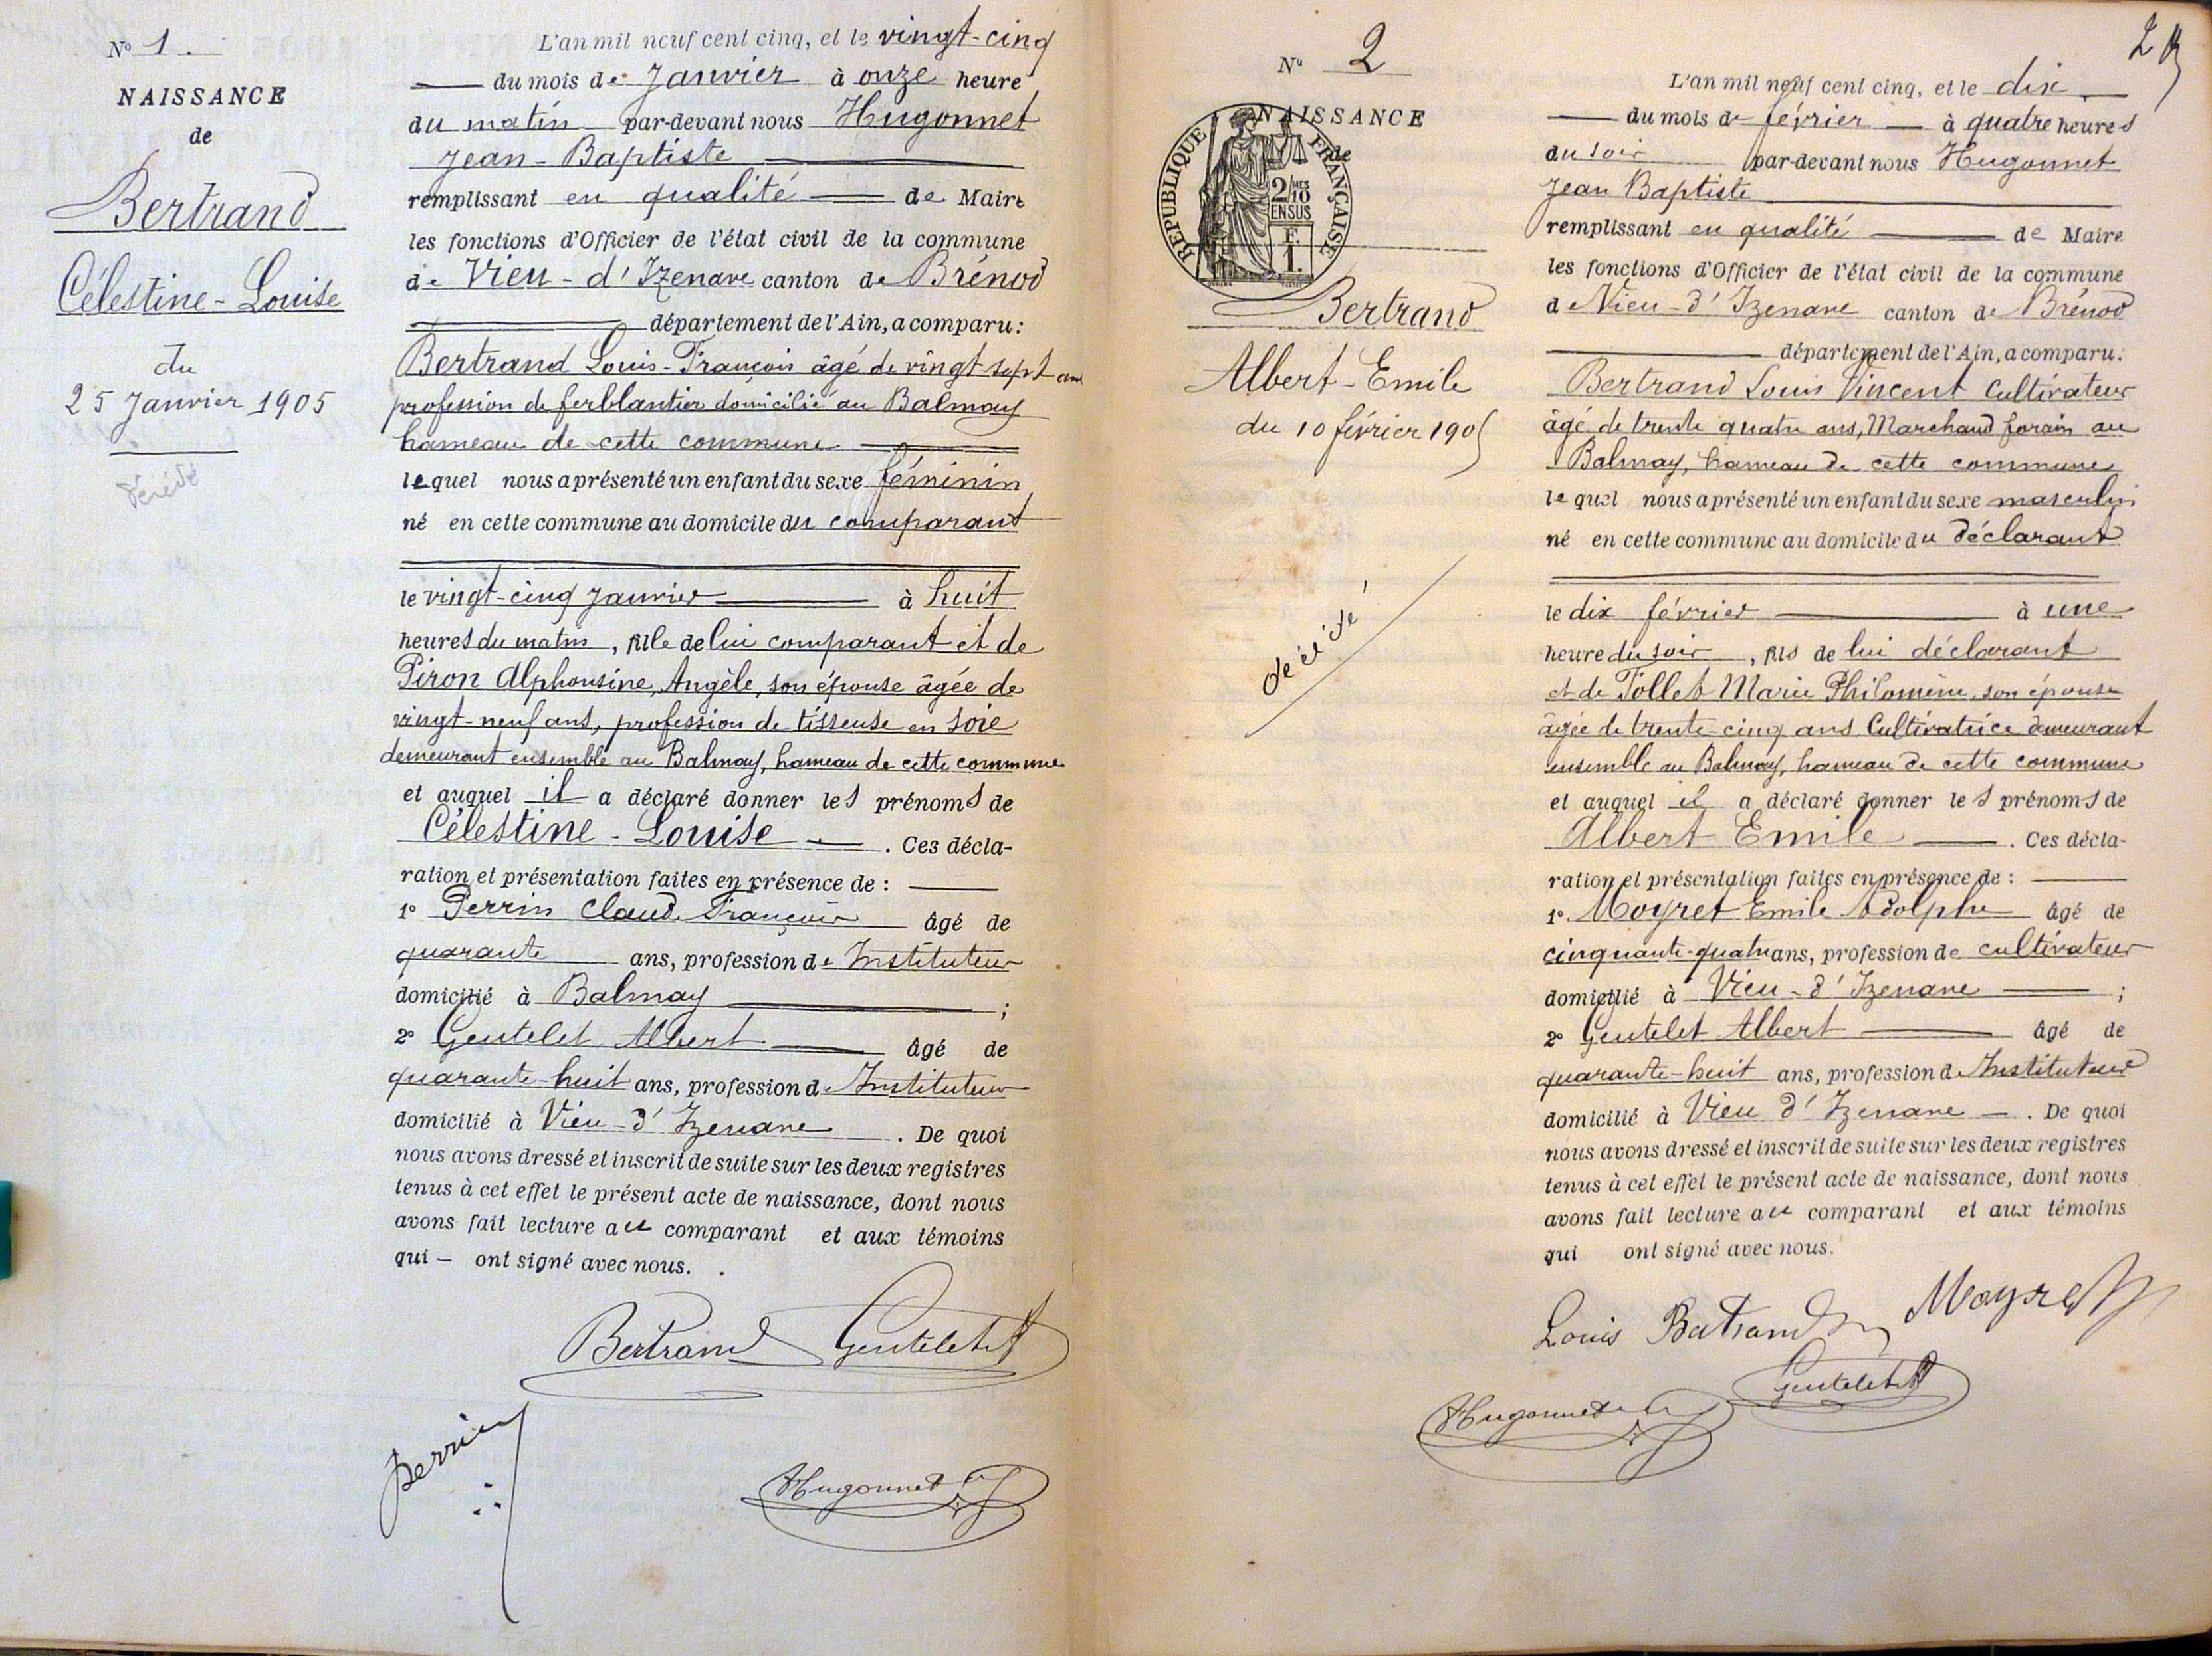 N° 1.
NAISSANCE
de
Bertrand
Célestine-Louise
du
25 Janvier 1905
décédé
L'an mil neuf cent cinq, et le vingt-cinq
du mois de Janvier à onze heure
du matin par-devant nous Hugonnet
Jean-Baptiste
remplissant en qualité de Maire
les fonctions d'Officier de l'état civil de la commune
de Vieu-d'Izenave canton de Brénod
département de l'Ain, a comparu:
Bertrand Louis-François âgé de vingt-sept ans
profession de ferblantier domicilié au Balmay
hameau de cette commune
lequel nous a présenté un enfant du sexe féminin
né en cette commune au domicile du comparant
le vingt-cinq Janvier à huit
heures du matin, fille de lui comparant et de
Piron Alphonsine, Angèle, son épouse âgée de
vingt-neuf ans, profession de tisseuse en soie
demeurant ensemble au Balmay, hameau de cette commune
et auquel il a déclaré donner les prénoms de
Célestine-Louise. Ces décla-
ration et présentation faites en présence de:
1° Perrin Claude François âgé de
quarante ans, profession de Instituteur
domicilié à Balmay;
2° Gentelet Albert âgé de
quarante-huit ans, profession de Instituteur
domicilié à Vieu-d'Izenave. De quoi
nous avons dressé et inscrit de suite sur les deux registres
tenus à cet effet le présent acte de naissance, dont nous
avons fait lecture au comparant et aux témoins
qui - ont signé avec nous.
Bertrand Gentelet
Perrin
Hugonnet
2
N° 2
NAISSANCE
de
REPUBLIQUE FRANÇAISE
2/10 MES
EN SUS
F.
1.
Bertrand
Albert-Emile
du 10 février 1905
décédé
L'an mil neuf cent cinq, et le dix
du mois de février à quatre heures
du soir par-devant nous Hugonnet
Jean Baptiste
remplissant en qualité de Maire
les fonctions d'Officier de l'état civil de la commune
de Vieu-d'Izenave canton de Brénod
département de l'Ain, a comparu:
Bertrand Louis Vincent Cultivateur
âgé de trente quatre ans, Marchand forain au
Balmay, hameau de cette commune
lequel nous a présenté un enfant du sexe masculin
né en cette commune au domicile du déclarant
le dix février à une
heure du soir, fils de lui déclarant
et de Tollet Marie Philomène, son épouse
âgée de trente-cinq ans Cultivatrice demeurant
ensemble au Balmay, hameau de cette commune
et auquel il a déclaré donner les prénoms de
Albert Emile. Ces décla-
ration et présentation faites en présence de:
1° Moyret Emile Adolphe âgé de
cinquante-quatre ans, profession de cultivateur
domicilié à Vieu-d'Izenave;
2° Gentelet Albert âgé de
quarante-huit ans, profession de Instituteur
domicilié à Vieu d'Izenave. De quoi
nous avons dressé et inscrit de suite sur les deux registres
tenus à cet effet le présent acte de naissance, dont nous
avons fait lecture au comparant et aux témoins
qui ont signé avec nous.
Louis Bertrand Moyret
Gentelet
Hugonnet